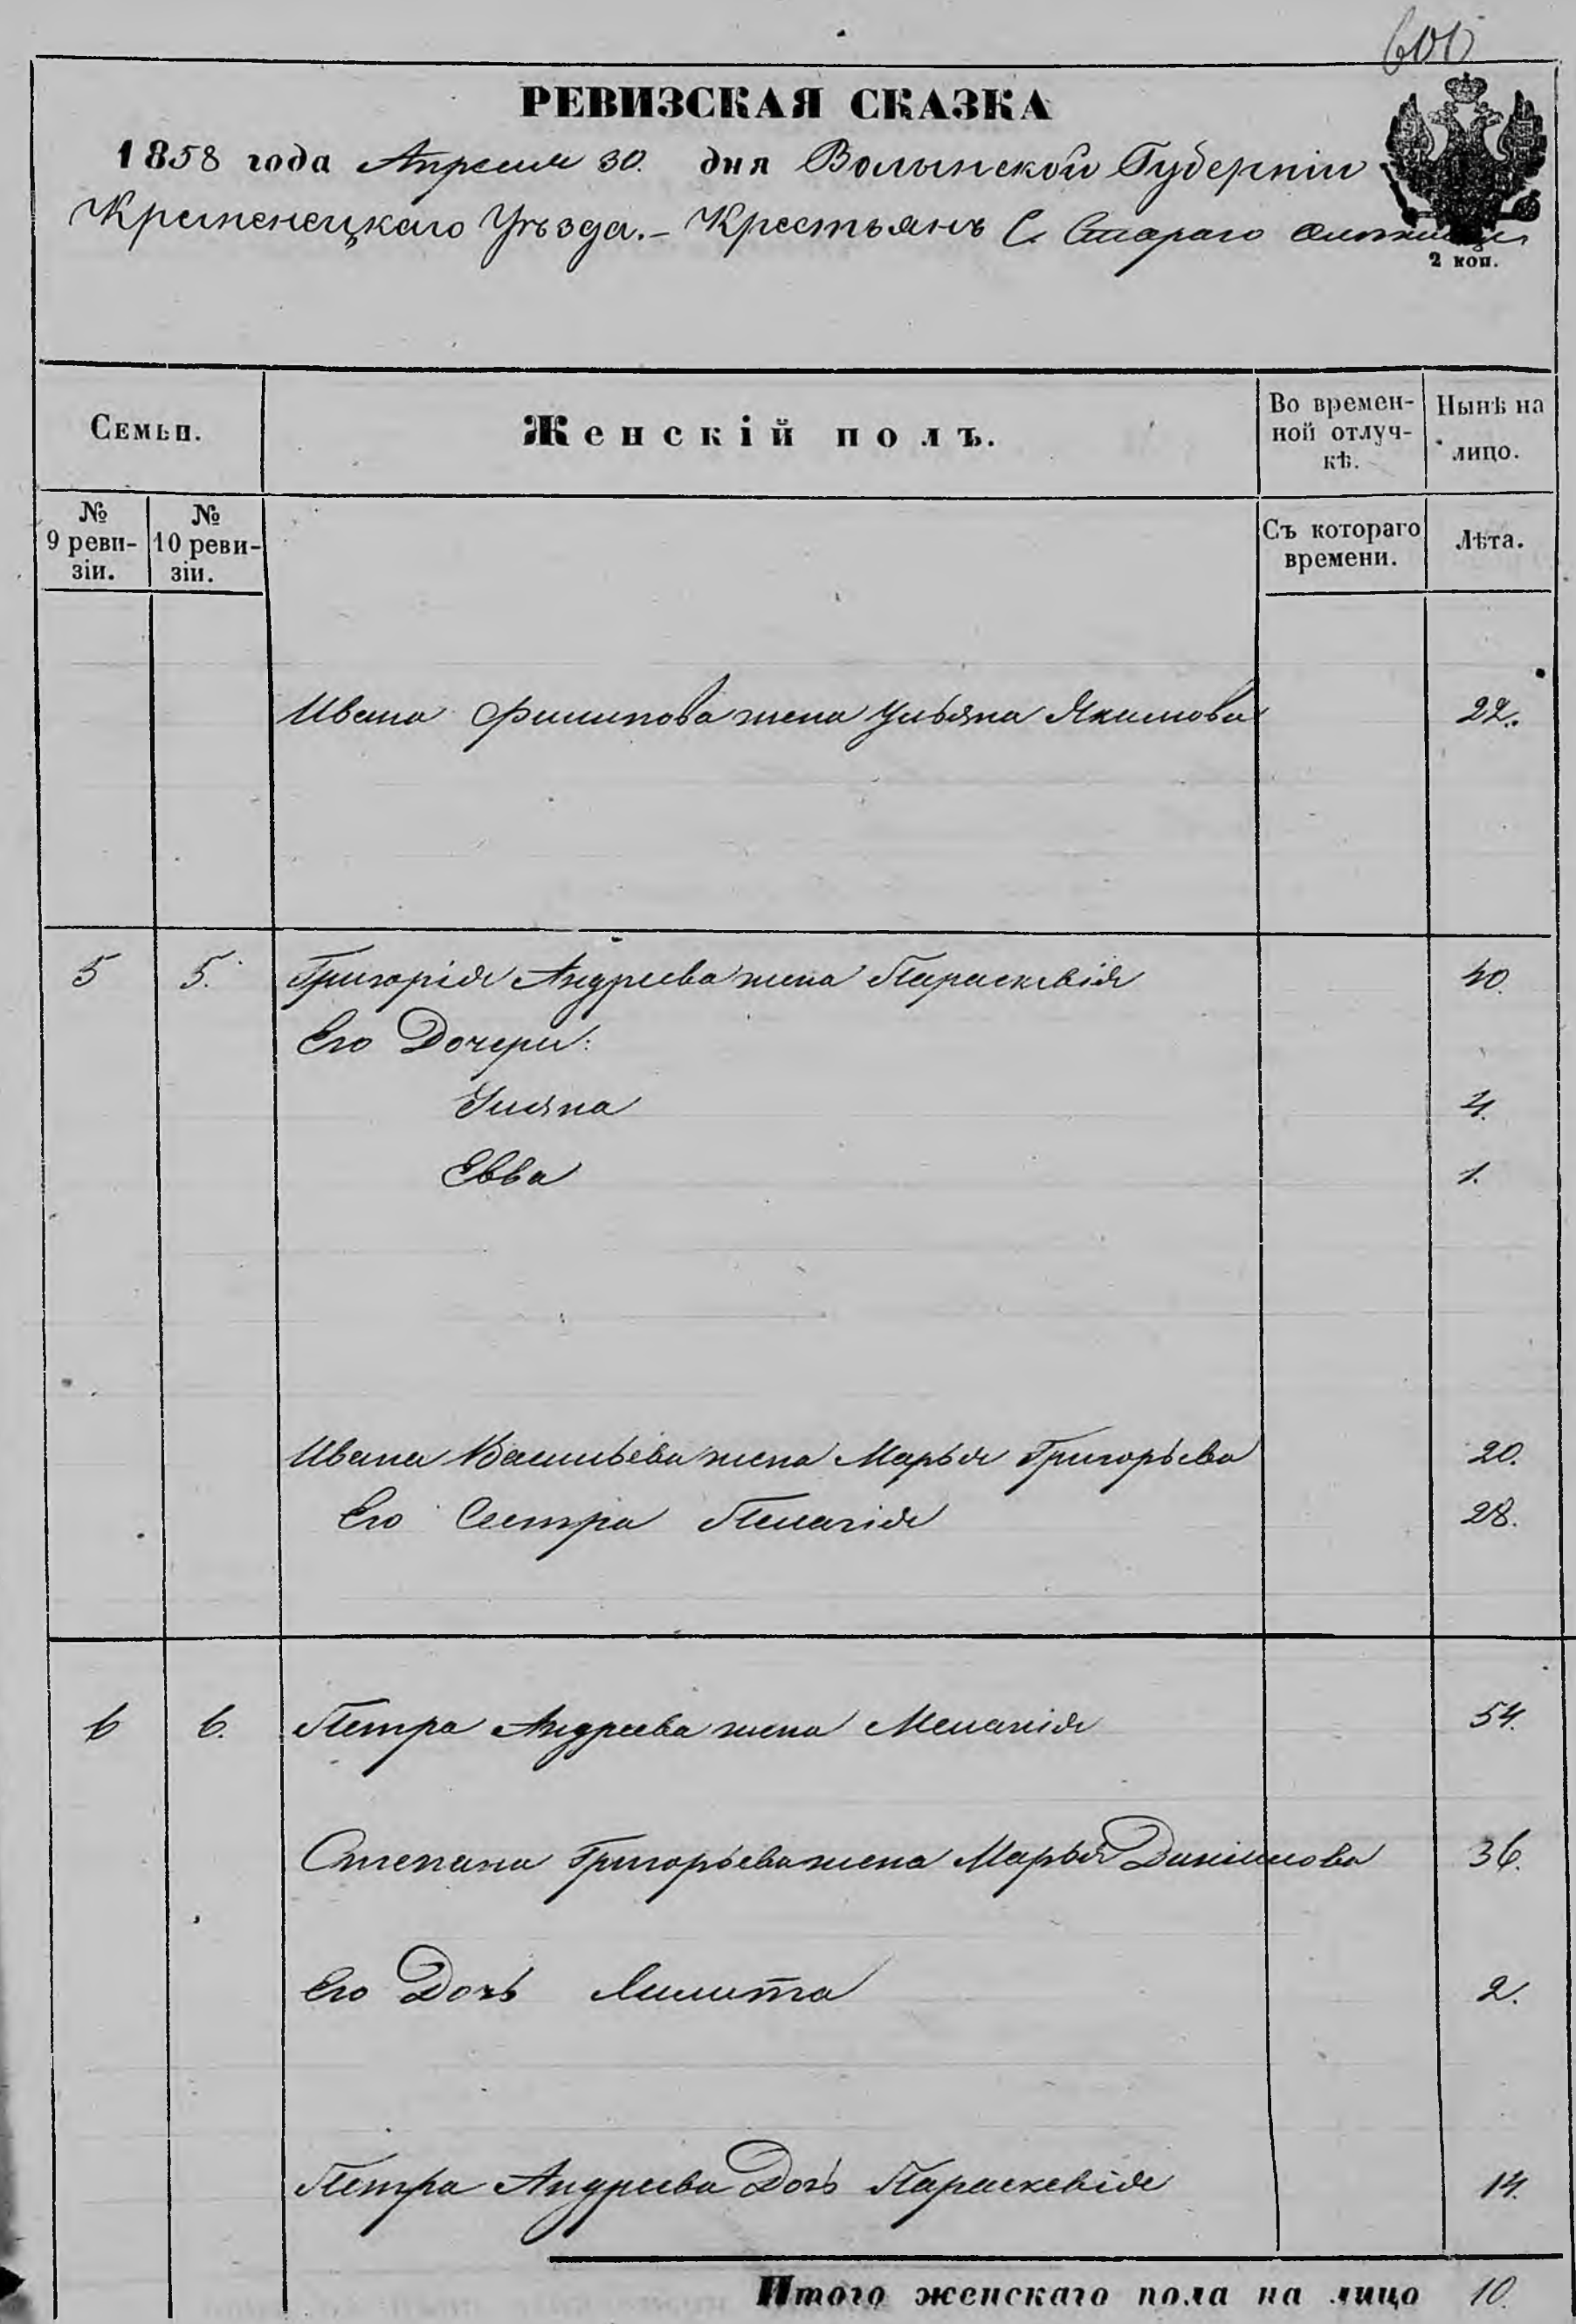 600
РЕВИЗСКАЯ СКАЗКА
1858 года Апреля 30. дня Волынской Губерніи
Кременецкаго Уѣзда.- Крестьянъ С. Стараго
2 коп.
Семьи.
Женскій полъ.
Во времен-
ной отлуч-
кѣ.
Нынѣ на
лицо.
№
9 реви-
зіи.
№
10 реви-
зіи.
Съ котораго
времени.
Лѣта.
Ивана Филипова жена Ульяна Якимова 22.
5 5. Григорія Андреева жена Параскевія 40.
Его Дочери:
Улияна 4.
Евва 1.
Ивана Васильева жена Марья Григорьева 20.
Его Сестра Пелагія 28.
6 6. Петра Андреева жена Меланія 54.
Степана Григорьева жена Марья Данилова 36.
Его Дочь 2.
Петра Андреева Дочь Параскевія 14.
Итого женскаго пола на лицо 10.